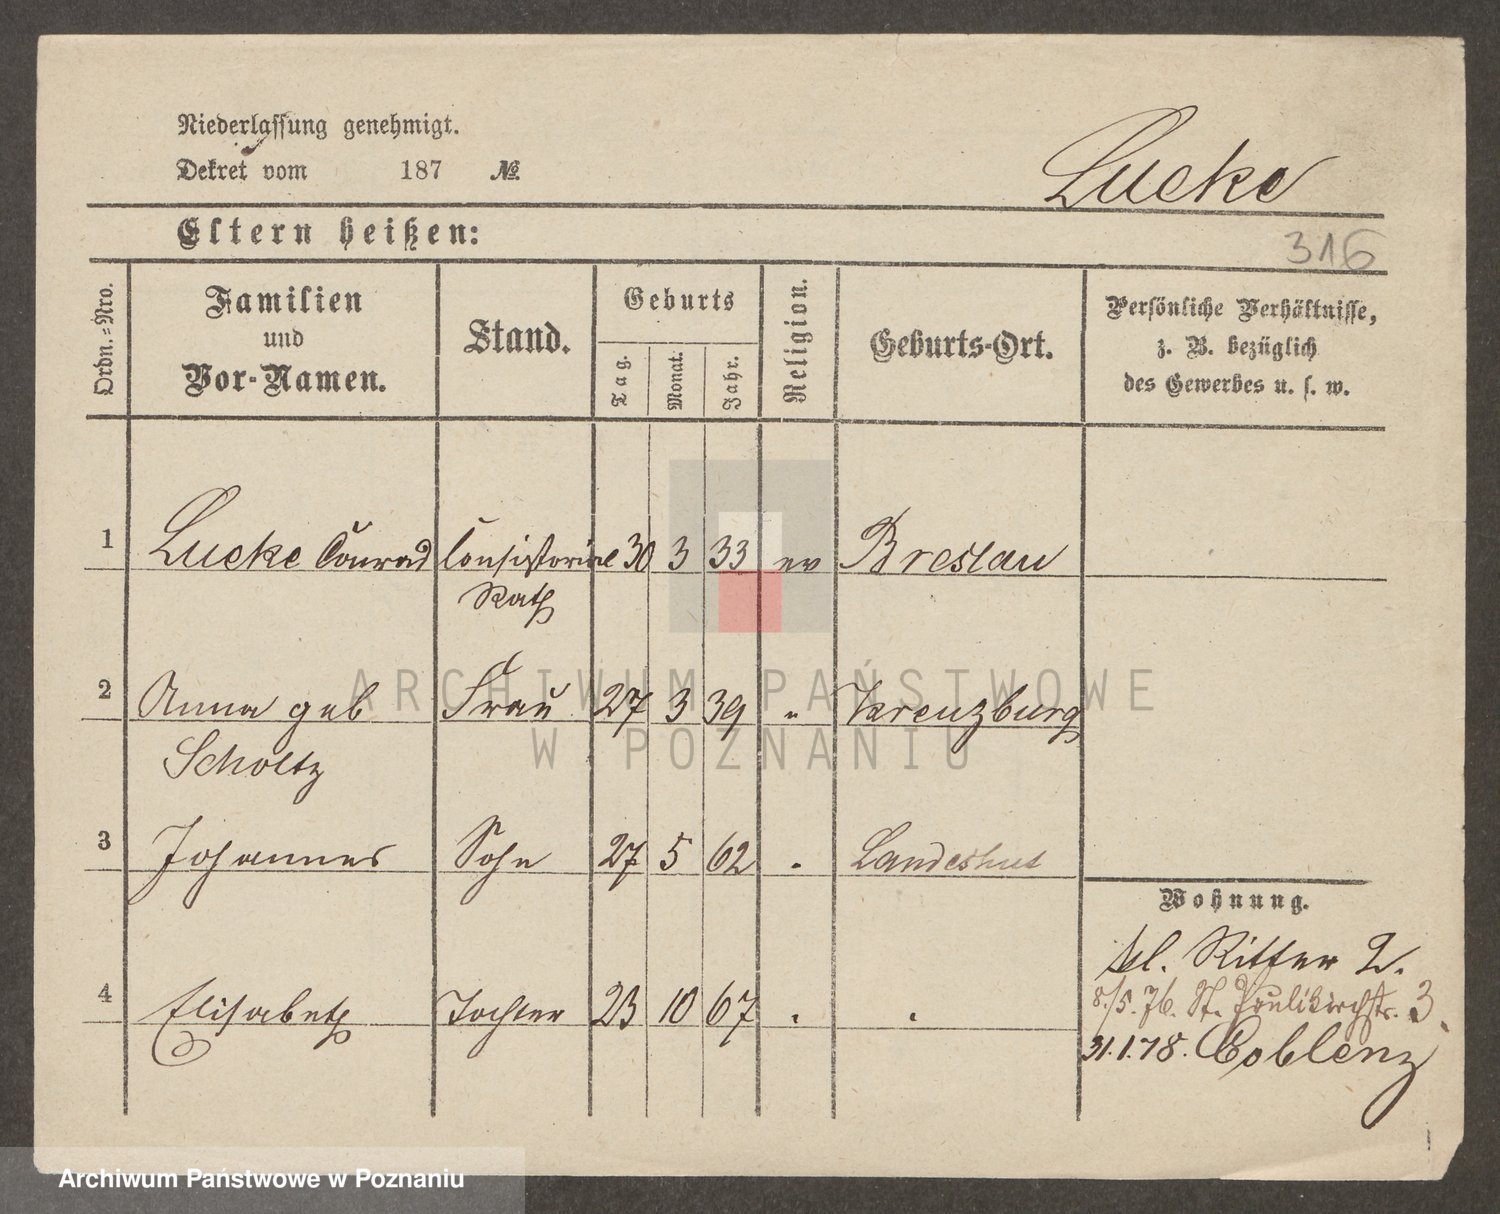 Niederlassung genehmigt.
Dekret vom 187 №
Lucke
Eltern heißen:
316
Ordn.-Nro.
Familien
und
Vor-Namen.
Stand.
Geburts
Tag.
Monat.
Jahr.
Religion.
Geburts-Ort.
Persönliche Verhältnisse,
z. B. bezüglich
des Gewerbes u. s. w.
1 Lucke Conrad Consistorial 30 3 33 ev Breslau
Rath
2 Anna geb Frau 27 3 39 " Kreuzburg
Scholtz
3 Johannes Sohn 27 5 62 " Landeshut
Wohnung.
kl. Ritter 2.
4 Elisabeth Tochter 23 10 67 " "
8./5. 76. St. Paulikirchstr. 3.
31.1.78. Coblenz
ARCHIWUM PAŃSTWOWE
W POZNANIU
Archiwum Państwowe w Poznaniu